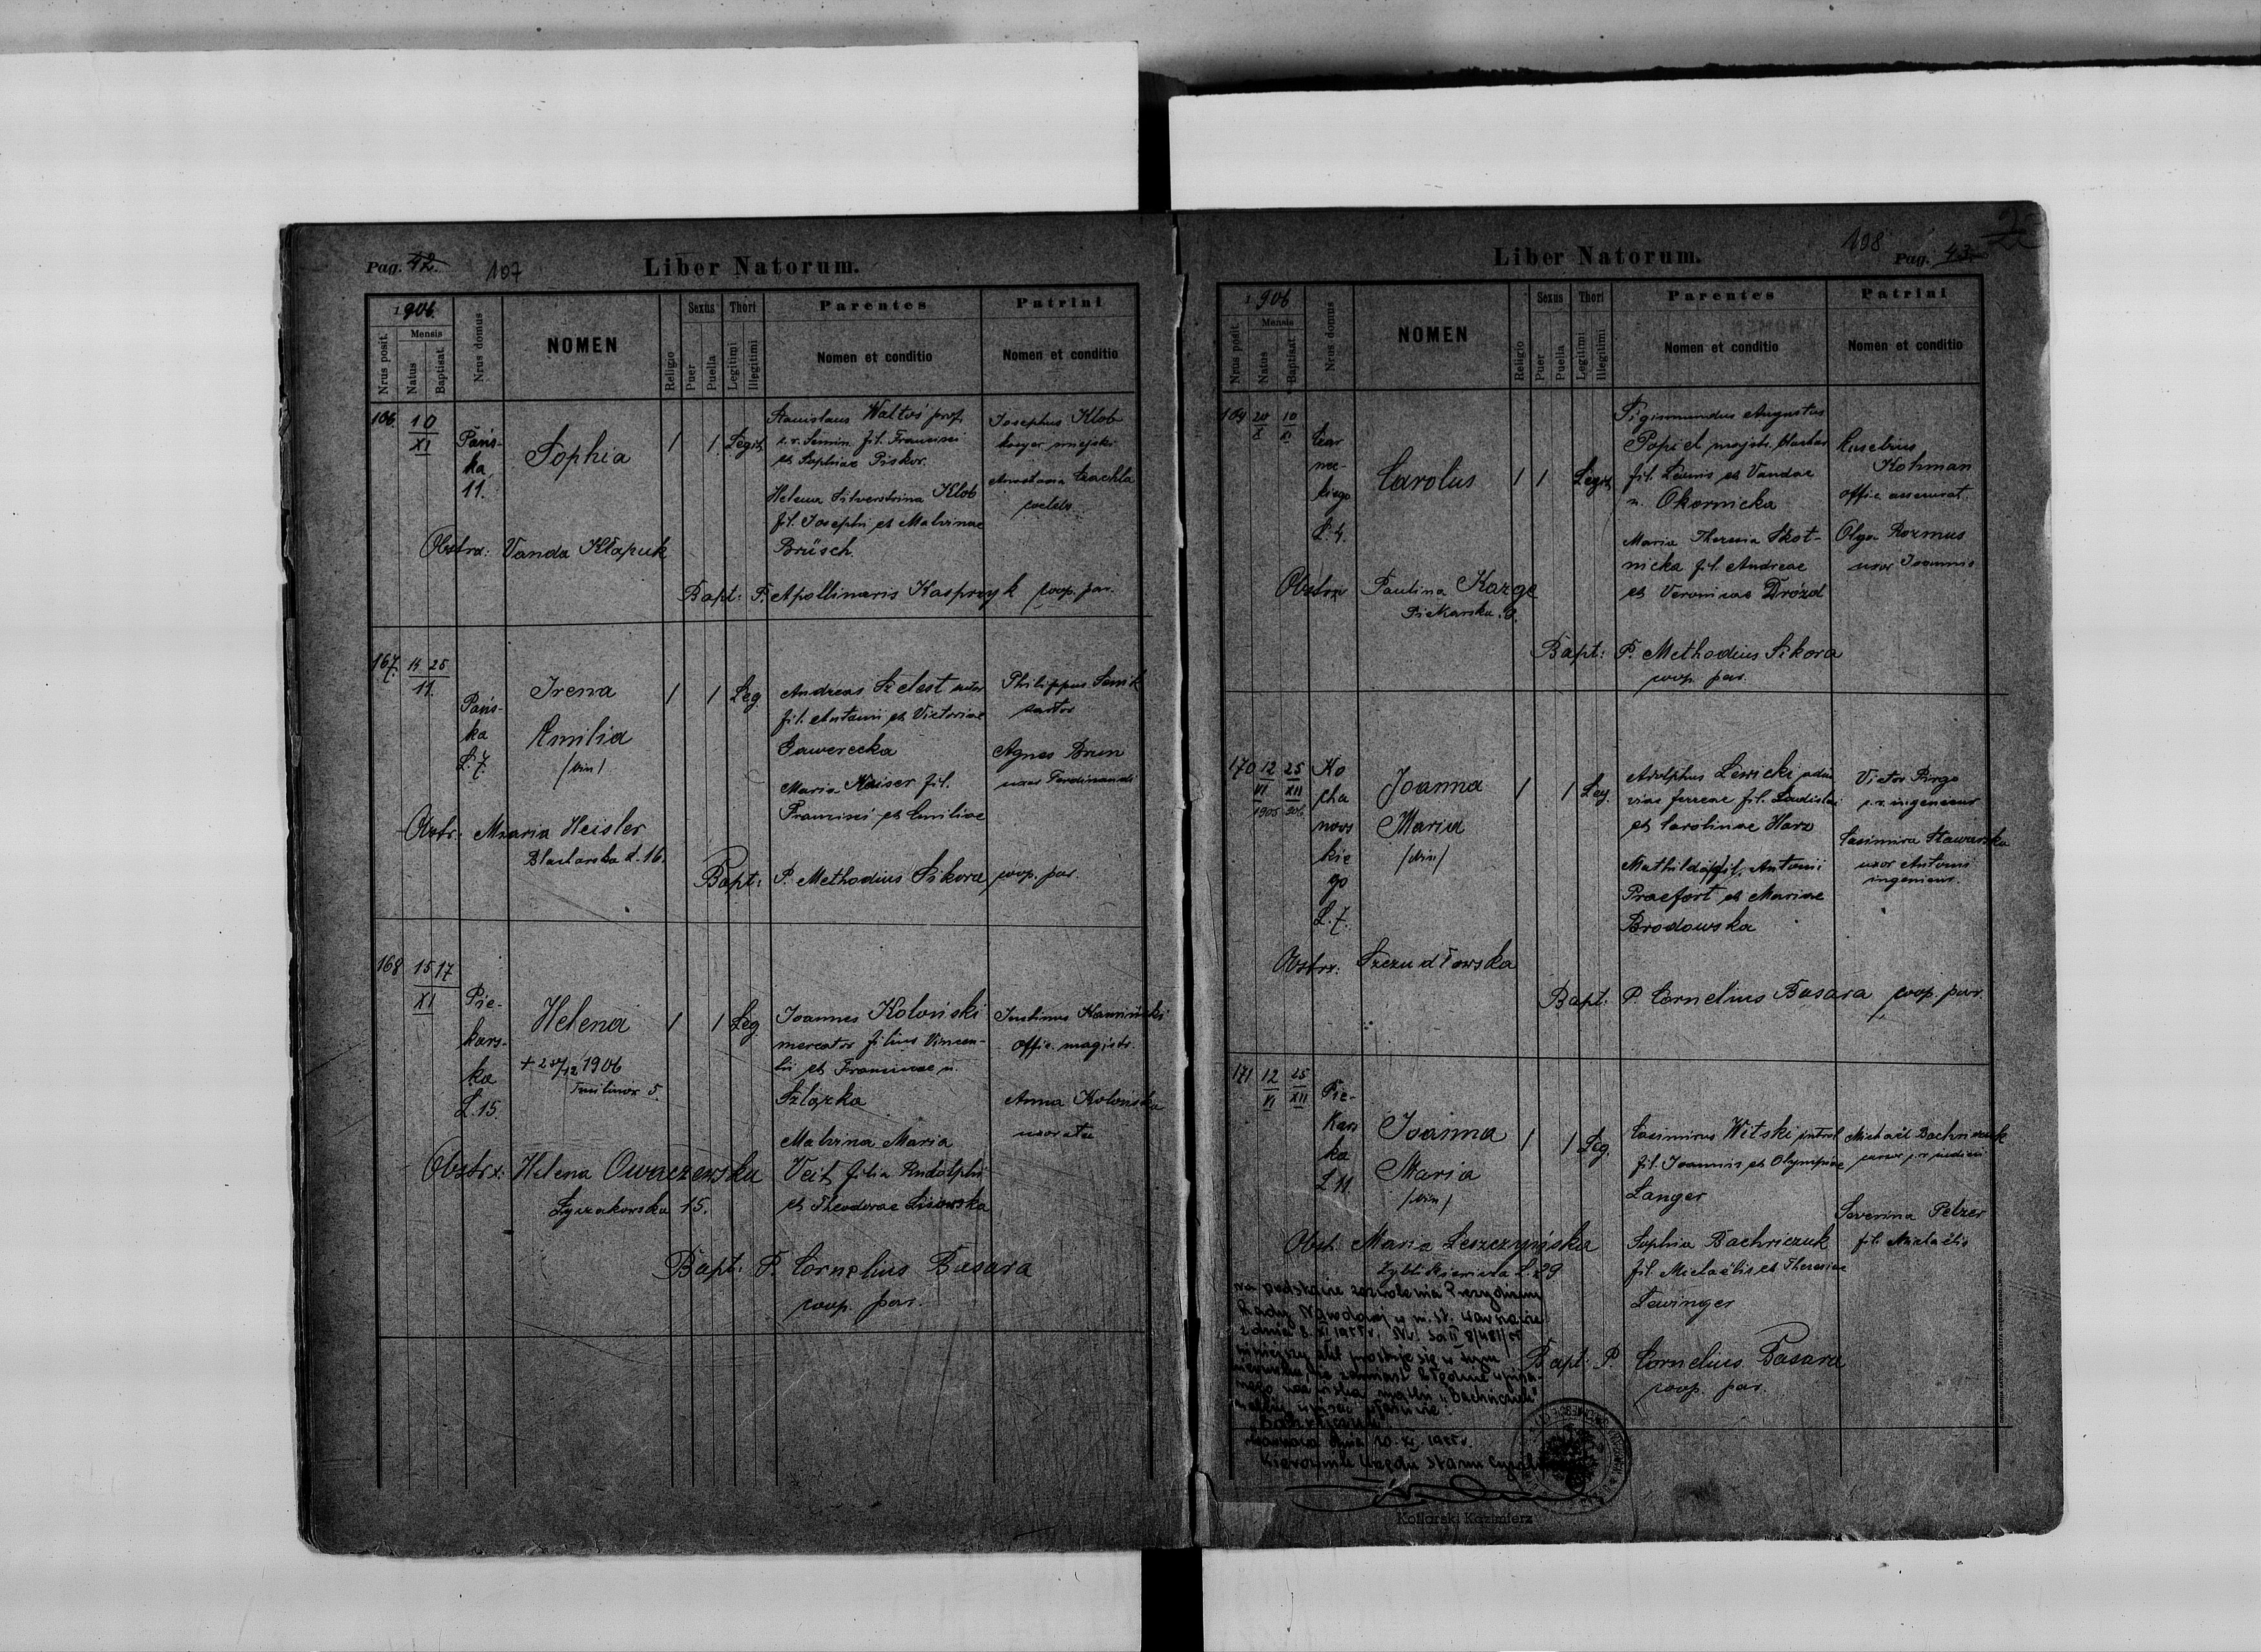 Pag. 42. 107
Liber Natorum.
1906.
Nrus posit.
Mensis
Natus
Baptisat.
Nrus domus
NOMEN
Religio
Sexus
Puer
Puella
Thori
Legitimi
Illegitimi
Parentes
Nomen et conditio
Patrini
Nomen et conditio
166.
10
XI
Pańs-
ka
11.
Sophia
1
1
Legit.
Stanislaus Waltoś prof.
Semin. fil. Francisci
et Sophiae Piskor.
Helena Silverstrina Klob
fil. Josephi et Malvinae
Brüsch.
Josephus Klob
miejski
Anastasia Czachla
coelebs
Obstrx: Vanda Kłapuk
Bapt: P. Apollinaris Kasprzyk coop. par.
167.
14 25
11.
Pańs-
ka
L. 7.
Irena
Emilia
/bin/
1
1
Leg
Andreas Szelest sutor
fil. Antonii et Victoriae
Gawerecka
Maria Kaiser fil.
Francisci et Emiliae
Philippus Senik
sartor
Agnes Brun
uxor Ferdinandi
Obstr: Maria Heisler
Blacharska d. 16.
Bapt: P. Methodius Sikora coop. par.
168
15 17
XI
Pie-
kars-
ka
L. 15.
Helena
+ 20/12 1906
5.
1
1
Leg
Joannes Koloński
mercator filius Vincen-
tii et Franciscae n.
Szlązka
Malvina Maria
Veit filia Rudolphi
et Theodorae Lisowska
Justinus Kamiński
offic. magistr.
Anna Kolońska
uxorata
Obstrx: Helena Owaczewska
Łyczakowska 15.
Bapt: P. Cornelius Basara
coop. par.
108 Pag. 43.
Liber Natorum.
1906
Nrus posit.
Mensis
Natus
Baptisat
Nrus domus
NOMEN
Religio
Sexus
Puer
Puella
Thori
Legitimi
Illegitimi
Parentes
Nomen et conditio
Patrini
Nomen et conditio
169
20
X
10
XI
Czar
nec-
kiego
L. 4.
Carolus
1
1
Legit.
Sigismundus Augustus
Popiel
fil. Leonis et Vandae
n. Okornicka
Maria Theresia Skot-
nicka fil. Andreae
et Veronicae Drózd
Eusebius
Kohman
offic. assecurat.
Olga Rozmus
uxor Joannis
Obstrx Paulina Karge
Piekarska 9.
Bapt: P. Methodius Sikora
coop. par.
170
12
VI
1905
25
XII
906
Ko
cha
nows
kie
go
L. 7.
Joanna
Maria
/bin/
1
1
Leg.
Adolphus Lewicki
viae ferreae fil. Ladislai
et Carolinae Harz
Mathilda fil. Antonii
Praefort et Mariae
Brodowska
Victor Pirgo
c. r. ingenieur
Casimira Stawarska
uxor Antonii
ingenieur.
Obstrx: Szczudłowska
Bapt. P. Cornelius Basara coop. par.
171
12
VI
25
XII
Pie-
kars
ka
L 11.
Joanna
Maria
/bin/
1
1
Leg.
Casimirus Witski
fil. Joannis et Olympiae
Langer
Sophia Bachriczuk
fil. Michaëlis et Theresiae
Lewinger
Michaël Bachriczuk
Severina Pelzer
fil. Michaëlis
Obst. Maria Leszczyńska
Zyblikiewicza L. 29
Bapt. P. Cornelius Basara
coop. par.
na podstawie zezwolenia Prezydium
Rady Narodowej w m. st. Warszawie
z dnia 8. XI 1955 r. Nr. Sa II 8/481/55
niniejszy akt prostuje się w tym
że zamiast błędnie wpisa-
nego nazwiska matki "Bachriczuk"
Warszawa dnia 10. XI. 1955 r.
Kierownik Urzędu Stanu Cywilnego
Kotlorski Kazimierz